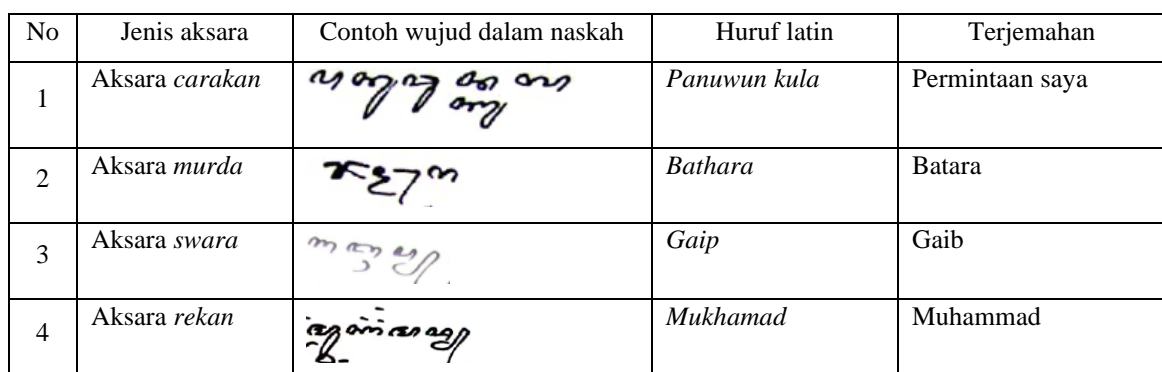 No Jenis aksara Contoh wujud dalam naskah Huruf latin Terjemahan
1 Aksara carakan Panuwun kula Permintaan saya
2 Aksara murda Bathara Batara
3 Aksara swara Gaip Gaib
4 Aksara rekan Mukhamad Muhammad